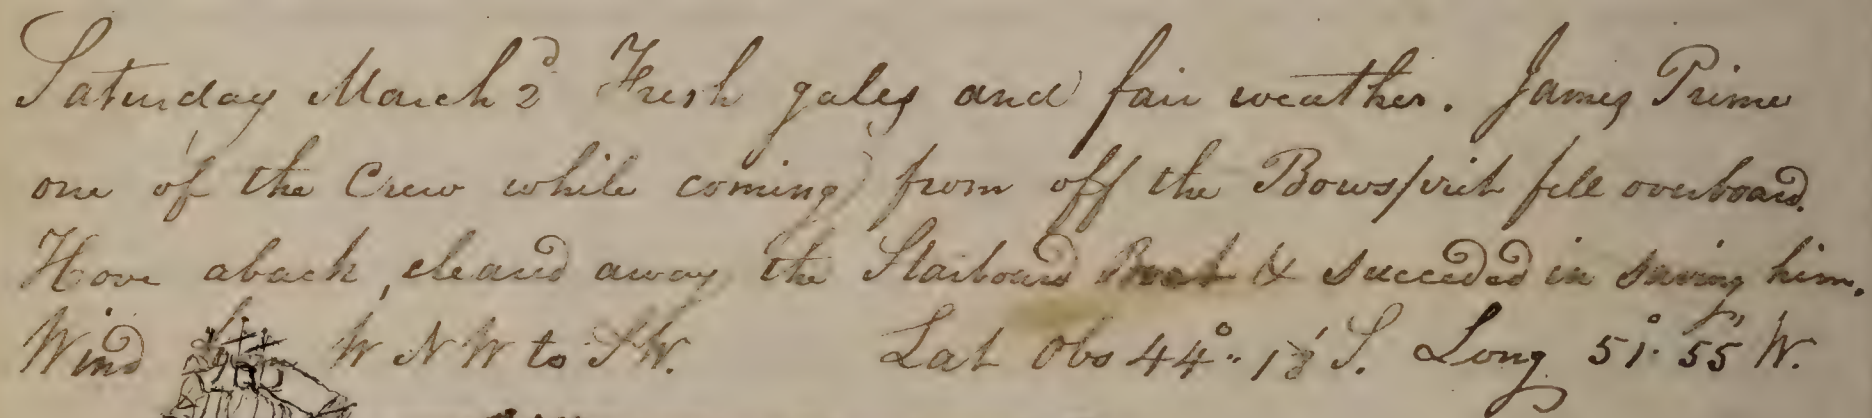 Saturday March 2d Fresh gales and fair weather. James Prime
one of the Crew while coming from off the Bowsprit fell overboard.
Hove aback, cleared away the Starboard Boat & succeded in saving him.
Wind W N W to S W. Lat Obs 44° S. Long 51° 55' W.